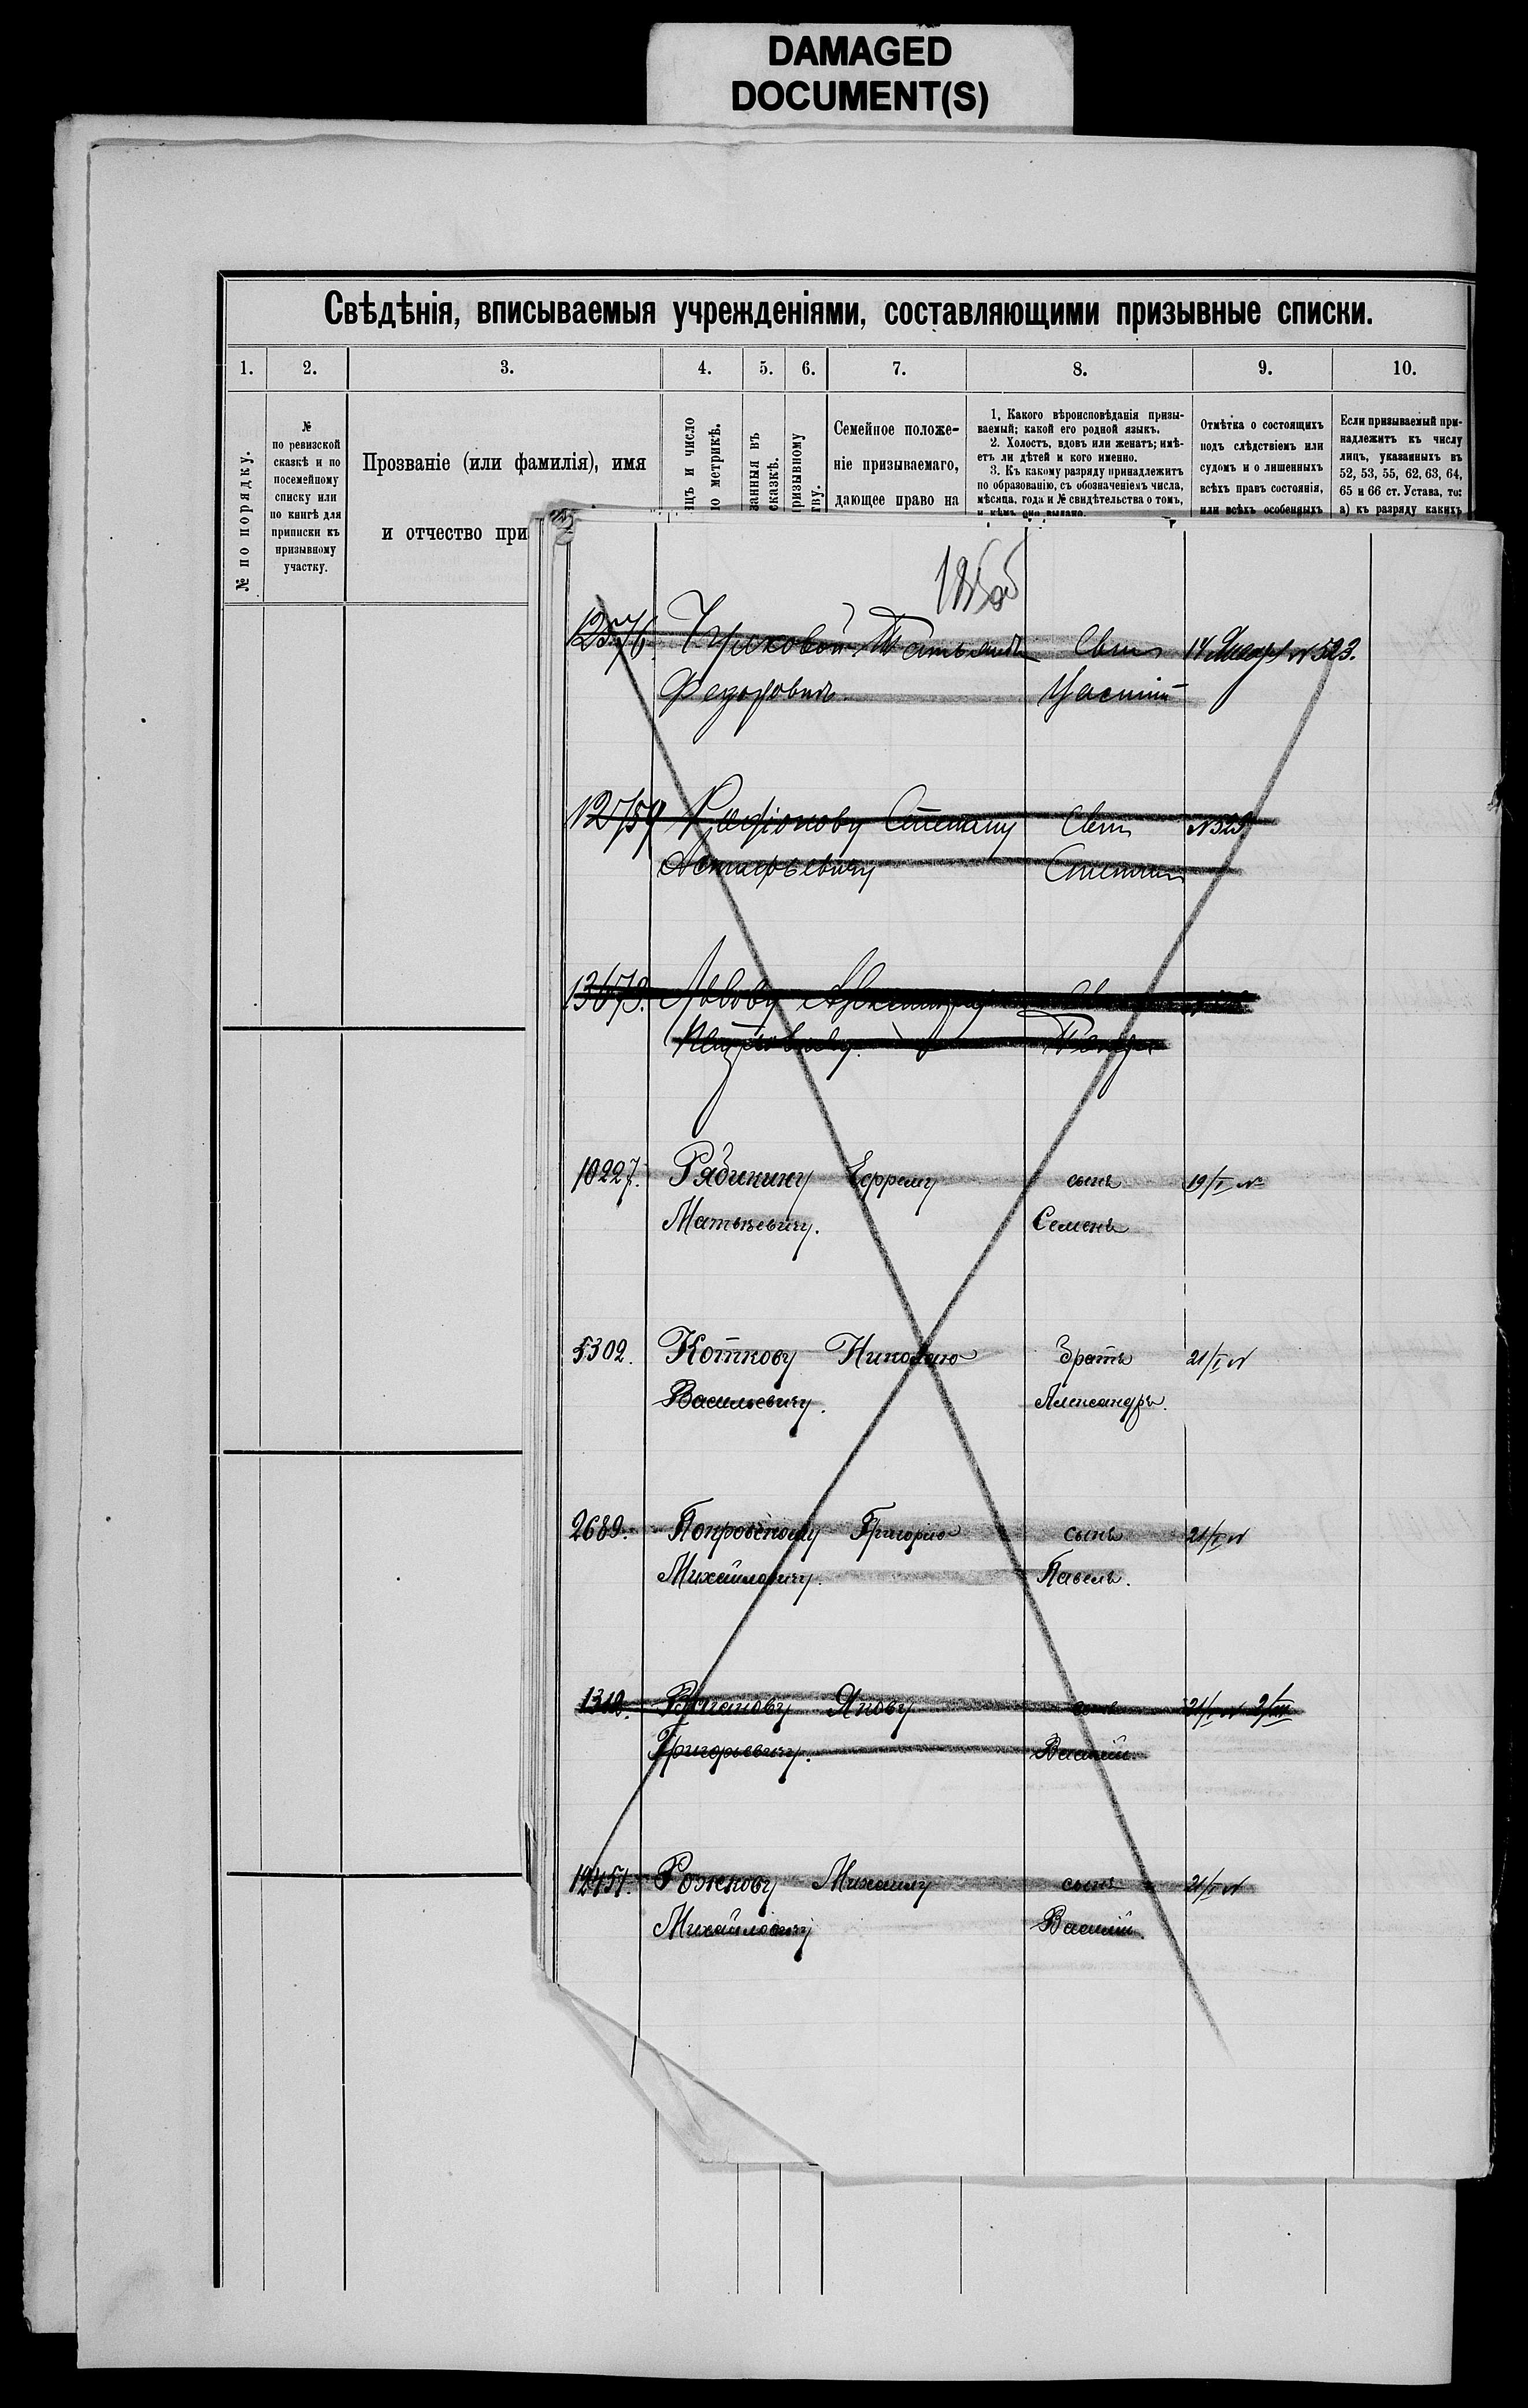 DAMAGED
DOCUMENT(S)
Свѣдѣнія, вписываемыя учрежденіями, составляющими призывные списки.
1. 2. 3. 4. 5. 6. 7. 8. 9. 10.
№ по порядку.
№
по ревизской
сказкѣ и по
посемейному
списку или
по книгѣ для
приписки къ
призывному
участку.
Прозваніе (или фамилія), имя
и отчество при
ицъ и число
ю метрикѣ.
занныя въ
сказкѣ.
ризывному
тву.
Семейное положе-
ніе призываемаго,
дающее право на
1. Какого вѣроисповѣданія призы-
ваемый; какой его родной языкъ.
2. Холостъ, вдовъ или женатъ; имѣ-
етъ ли дѣтей и кого именно.
3. Къ какому разряду принадлежитъ
по образованію, съ обозначеніемъ числа,
мѣсяца, года и № свидѣтельства о томъ,
и кѣмъ оно выдано.
Отмѣтка о состоящихъ
подъ слѣдствіемъ или
судомъ и о лишенныхъ
всѣхъ правъ состоянія,
или всѣхъ особенныхъ
Если призываемый при-
надлежитъ къ числу
лицъ, указанныхъ въ
52, 53, 55, 62, 63, 64,
65 и 66 ст. Устава, то:
а) къ разряду какихъ
Татьянѣ 14 Январ № 523.
Федоровнѣ
Степану №523
Степанъ
Львову Александру
Петровичу
10227. Рябинину Ефрему сынъ 19/I №
Матвѣевичу. Семенъ
5302. Коткову Николаю братъ 21/I №
Васильевичу. Александръ.
2689. Покровскому Григорію сынъ 21/I №
Михайловичу. Павелъ.
1312. Якову сынъ 21/I № 2/III
Григорьевичу. Василій.
12451. Рожкову Михаилу сынъ 21/I №
Михайловичу Василій.